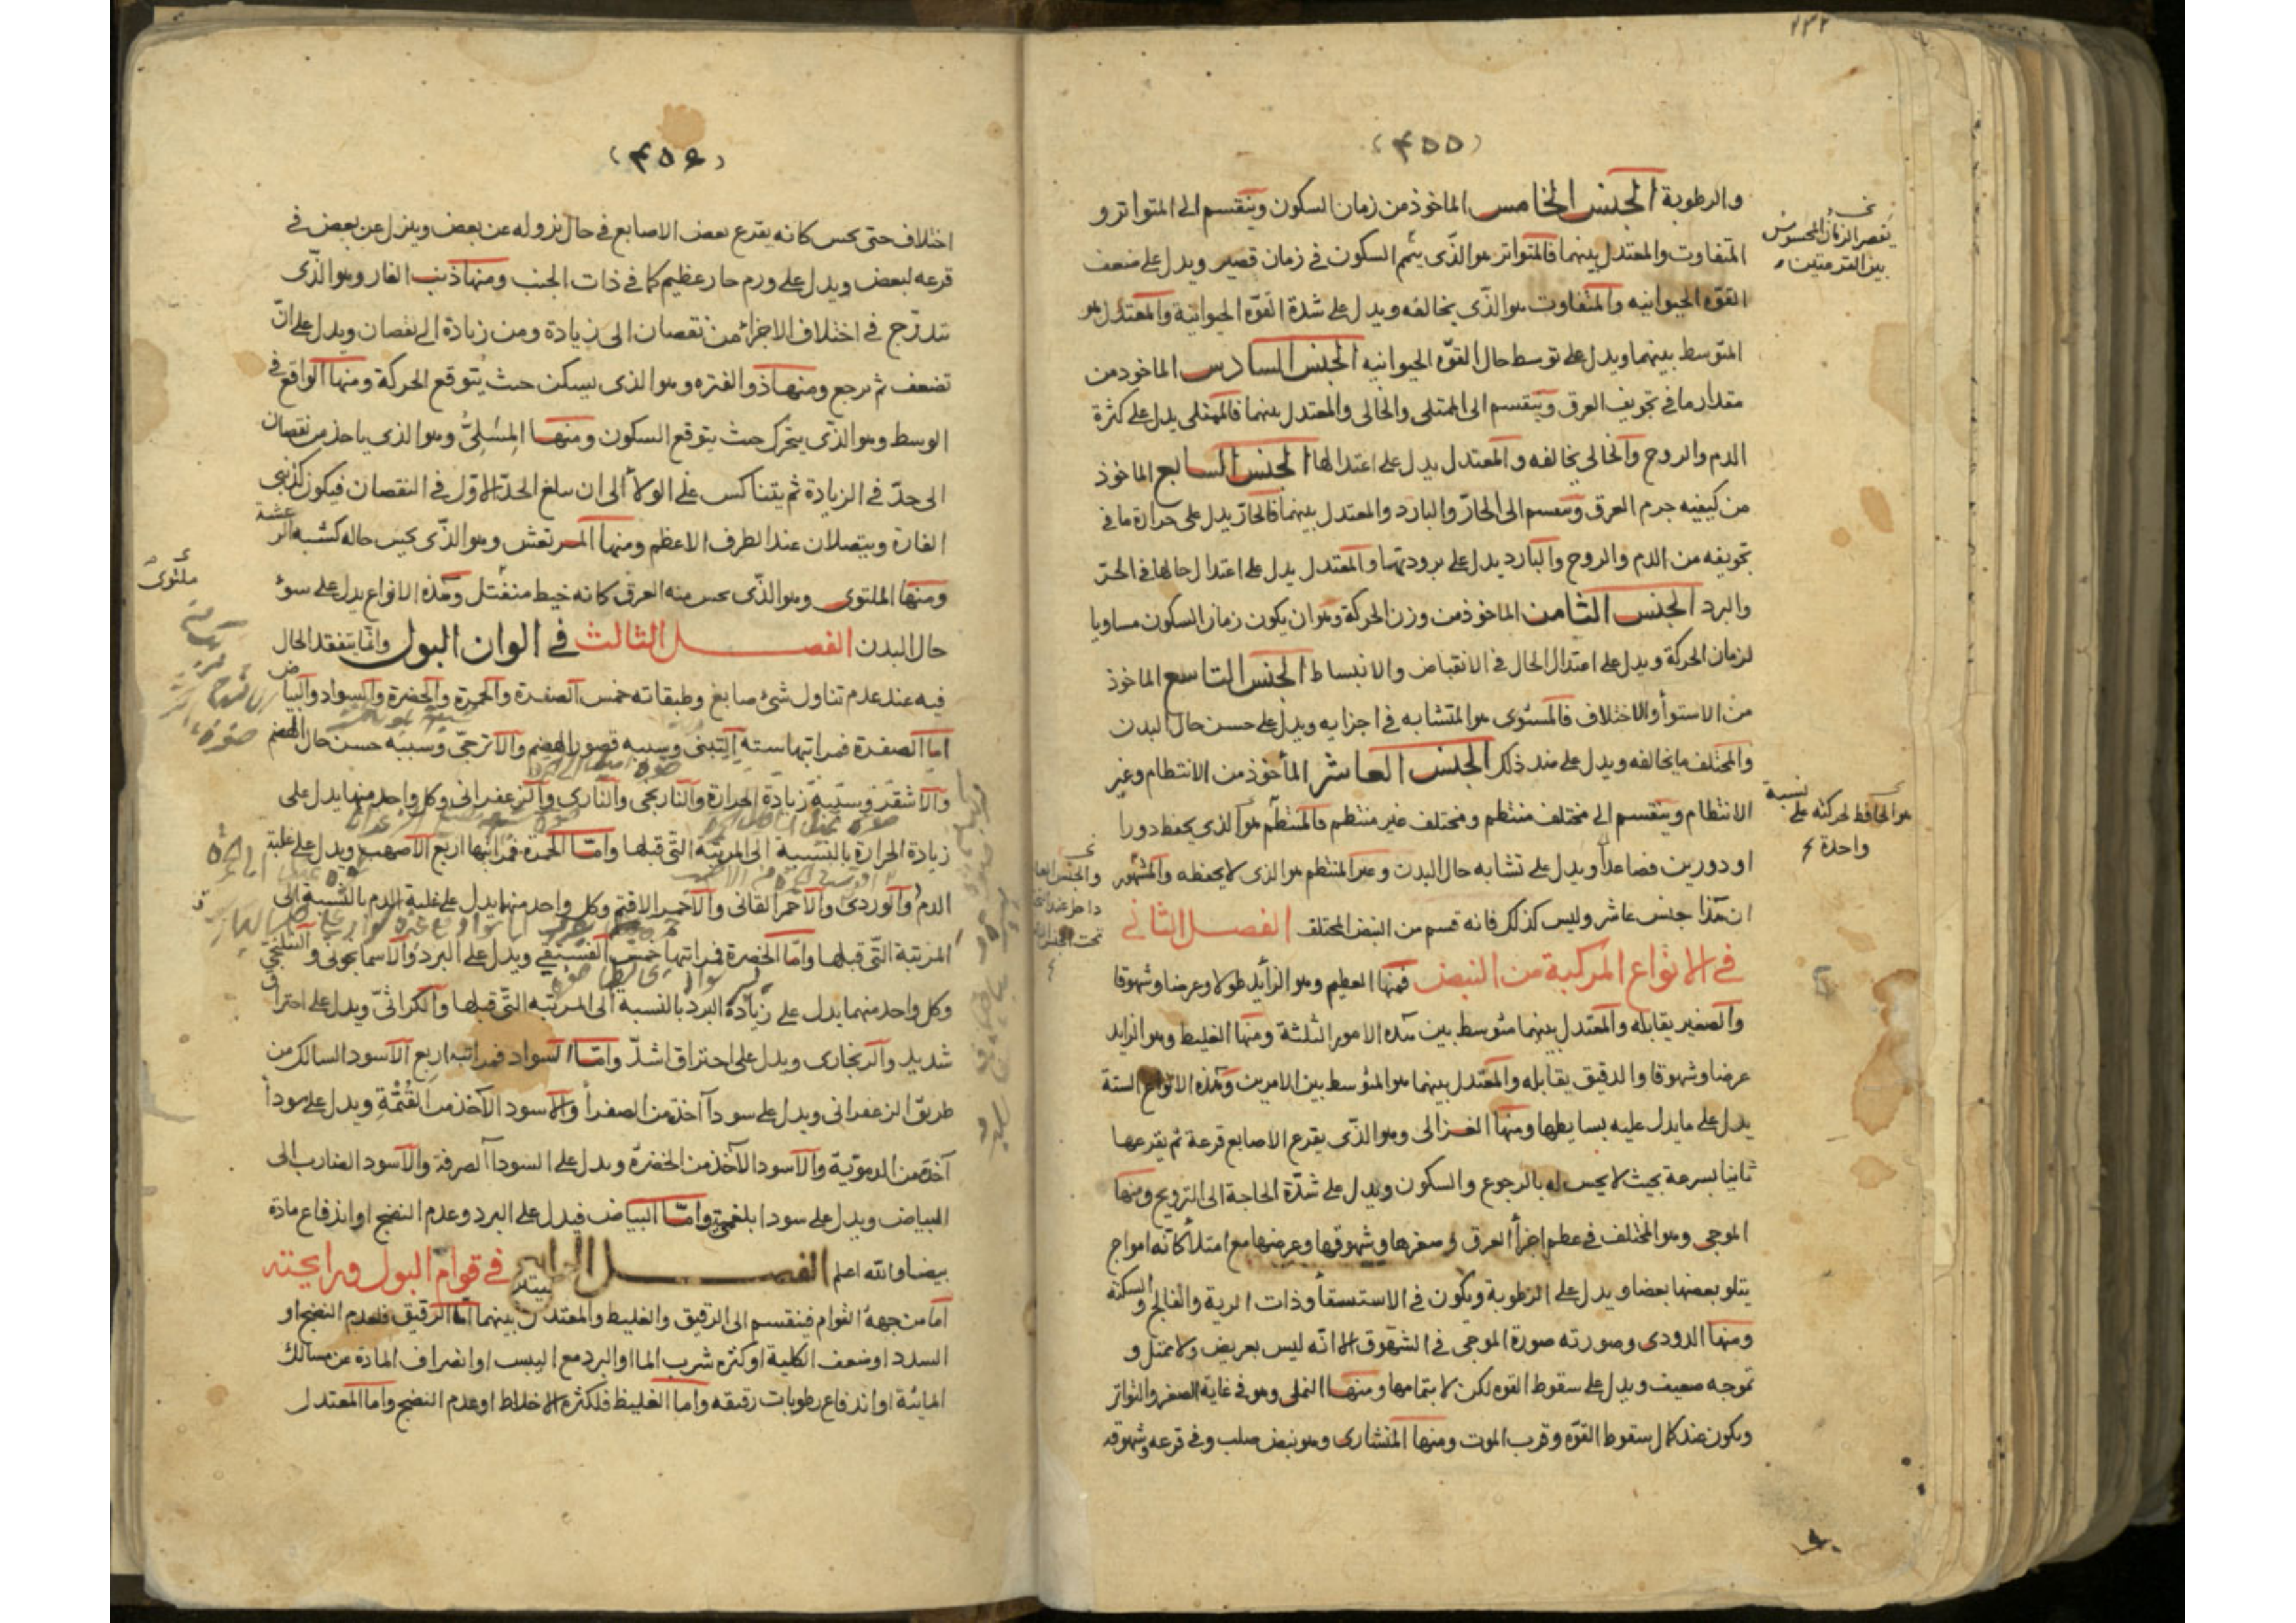 (۴۵۵)
والرطوبة الجنس الخامس الماخوذ من زمان السكون وينقسم الى المتواتر و
المتفاوت والمعتدل بينهما فالمتواتر هو الذى يتم السكون فى زمان قصير ويدل على ضعف
القوه الحيوانيه والمتفاوت هو الذى يخالفه ويدل على شدة القوه الحيوانية والمعتدل هو
المتوسط بينهما ويدل على توسط حال القوه الحيوانيه الجنس السادس الماخوذ من
مقدار ما فى تجويف العرق وينقسم الى الممتلى والخالى والمعتدل بينهما فالممتلى يدل على كثرة
الدم والروح والخالى يخالفه والمعتدل يدل على اعتدالها الجنس السابع الماخوذ
من كيفيه جرم العرق وينقسم الى الحار والبارد والمعتدل بينهما فالحار يدل على حرارة ما فى
تجويفه من الدم والروح والبارد يدل على برودتهما والمعتدل يدل على اعتدال حالها فى الحر
والبرد الجنس الثامن الماخوذ من وزن الحركة وهو ان يكون زمان السكون مساويا
لزمان الحركة ويدل على اعتدال الحال فى الانقباض والانبساط الجنس التاسع الماخوذ
من الاستوأ والاختلاف فالمستوى هو المتشابه فى اجزايه ويدل على حسن حال البدن
والمختلف ما يخالفه ويدل على ضد ذلك الجنس العاشر المأخوذ من الانتظام وغير
الانتظام وينقسم الى مختلف منتظم ومختلف غير منتظم فالمنتظم هو الذى يحفظ دورا
او دورين فصاعدا ويدل على تشابه حال البدن وغير المنتظم هو الذى لا يحفظه والمشهور
ان هذا جنس عاشر وليس كذلك فانه قسم من النبض المختلف الفصل الثانى
فى الانواع المركبة من النبض فمنها العظيم وهو الزأيد طولا وعرضا وشهوقا
والصغير يقابله والمعتدل بينهما متوسط بين هذه الامور الثلثة ومنها الغليظ وهو الزايد
عرضا وشهوقا والدقيق يقابله والمعتدل بينهما هو المتوسط بين الامرين وهذه الانواع الستة
يدل على ما يدل عليه بسايطها ومنها الغزالى وهو الذى يقرع الاصابع قرعة ثم يقرعها
ثانيا بسرعة بحيث لا يحس له بالرجوع والسكون ويدل على شدة الحاجة الى الترويح ومنها
الموجى وهو المختلف فى عظم اجزأ العرق وصغرها وشهوقها وعرضها مع امتلأ كانه امواج
يتلو بعضها بعضا ويدل على الرطوبة ويكون فى الاستسقأ وذات الرية والفالج والسكتة
ومنها الدودى وصورته صورة الموجى فى الشهوق الا انه ليس بعريض ولا ممتل و
تموجه ضعيف ويدل على سقوط القوه لكن لا بتمامها ومنها النملى وهو فى غاية الصغر والتواتر
ويكون عند كمال سقوط القوه وقرب الموت ومنها المنشارى وهو نبض صلب وفى قرعه وشهوقه
يقصر الزمان المحسوس
بين القرعتين
هو الحافظ لحركته على نسبة
واحدة
(۴۵۶)
اختلاف حتى يحس كانه يقرع بعض الاصابع فى حال نزوله عن بعض وينزل عن بعض فى
قرعه لبعض ويدل على ورم حار عظيم كما فى ذات الجنب ومنها ذنب الفار وهو الذى
يتدرج فى اختلاف الاجزأ من نقصان الى زيادة ومن زيادة الى نقصان ويدل على ان
تضعف ثم يرجع ومنها ذو الفتره وهو الذى يسكن حيث يتوقع الحركة ومنها الواقع فى
الوسط وهو الذى يتحرك حيث يتوقع السكون ومنها المسلى وهو الذى ياخذ من نقصان
الى حد فى الزيادة ثم يتناكس على الولأ الى ان يبلغ الحد الاول فى النقصان فيكون كذنبى
الفارة ويتصلان عند الطرف الاعظم ومنها المرتعش وهو الذى يحس حاله كشبه الرعشة
ومنها الملتوى وهو الذى يحس منه العرق كانه خيط منفتل وهذه الانواع يدل على سوء
حال البدن الفصل الثالث فى الوان البول وانما يتفقد الحال
فيه عند عدم تناول شئ صابغ وطبقاته خمس الصفرة والحمرة والخضرة والسواد والبياض
اما الصفرة فمراتبها ستة التبنى وسببه قصور الهضم والاترجى وسببه حسن حال الهضم
والاشقر وسببه زيادة الحرارة والنارنجى والنارى والزعفرانى وكل واحد منها يدل على
زيادة الحرارة بالنسبة الى المرتبة التى قبلها واما الحمرة فمراتبها اربع الاصهب ويدل على غلبة
الدم والوردى والاحمر القانى والاحمر الاقتم وكل واحد منها يدل على غلبة الدم بالنسبة الى
المرتبة التى قبلها واما الخضرة فمراتبها خمس الفستقى ويدل على البرد والاسمانجونى والنيلنجى
وكل واحد منهما يدل على زيادة البرد بالنسبه الى المرتبه التى قبلها والكراثى ويدل على احتراق
شديد والزنجارى ويدل على احتراق اشد واما السواد فمراتبه اربع الاسود السالك من
طريق الزعفرانى ويدل على سودأ آخذة من الصفرأ والاسود الآخذ من القتمة ويدل على سودأ
آخذة من الدموية والاسود الآخذ من الخضرة ويدل على السودأ الصرفة والاسود الضارب الى
البياض ويدل على سودا بلغمية واما البياض فيدل على البرد وعدم النضج او اندفاع مادة
بيضا والله اعلم الفصل الرابع فى قوام البول ورايحته
اما من جهة القوام فينقسم الى الرقيق والغليظ والمعتدل بينهما اما الرقيق فلعدم النضج او
السدد او ضعف الكلية او كثرة شرب المأ او البرد مع اليبس او انصراف المادة عن مسالك
المائية او اندفاع رطوبات رقيقه واما الغليظ فلكثرة الاخلاط او عدم النضج واما المعتدل
ملتوى